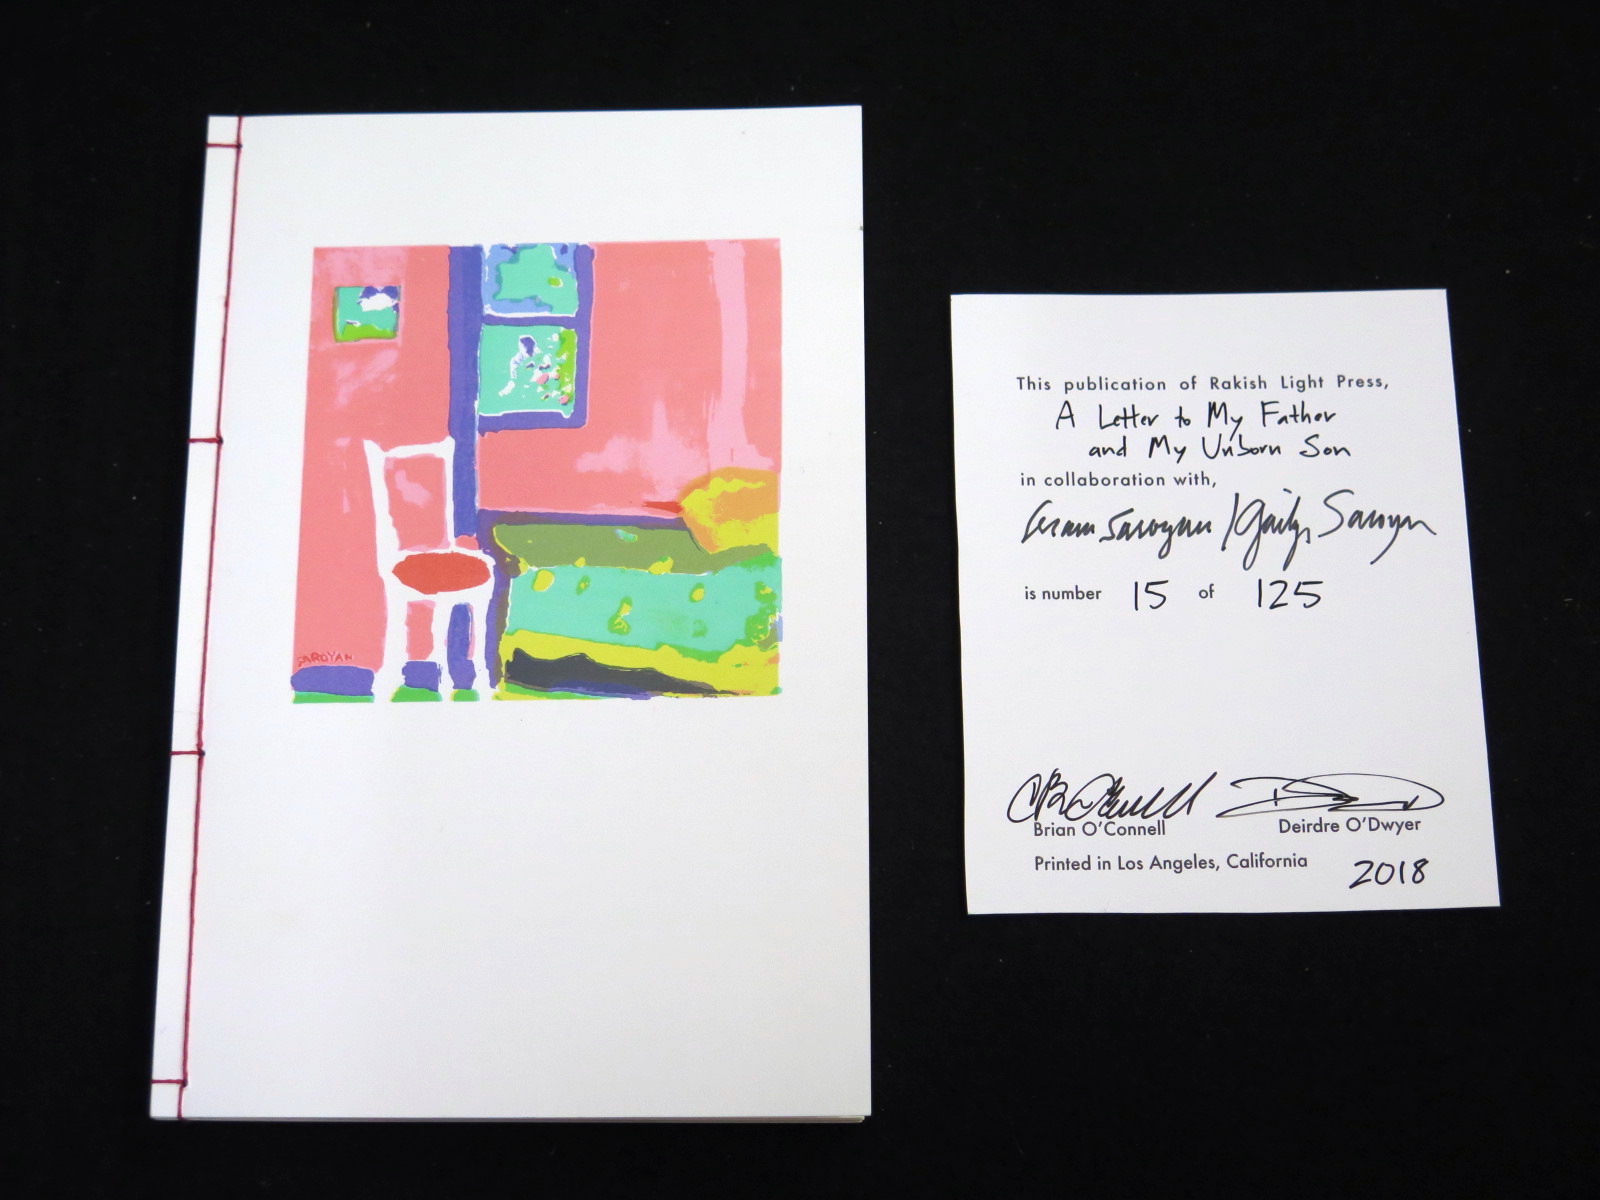 SAROYAN
This publication of Rakish Light Press,
A Letter to My Father
and My Unborn Son
in collaboration with,
Aram Saroyan / Gailyn Saroyan
is number 15 of 125
Brian O'Connell
Deirdre O'Dwyer
Printed in Los Angeles, California 2018